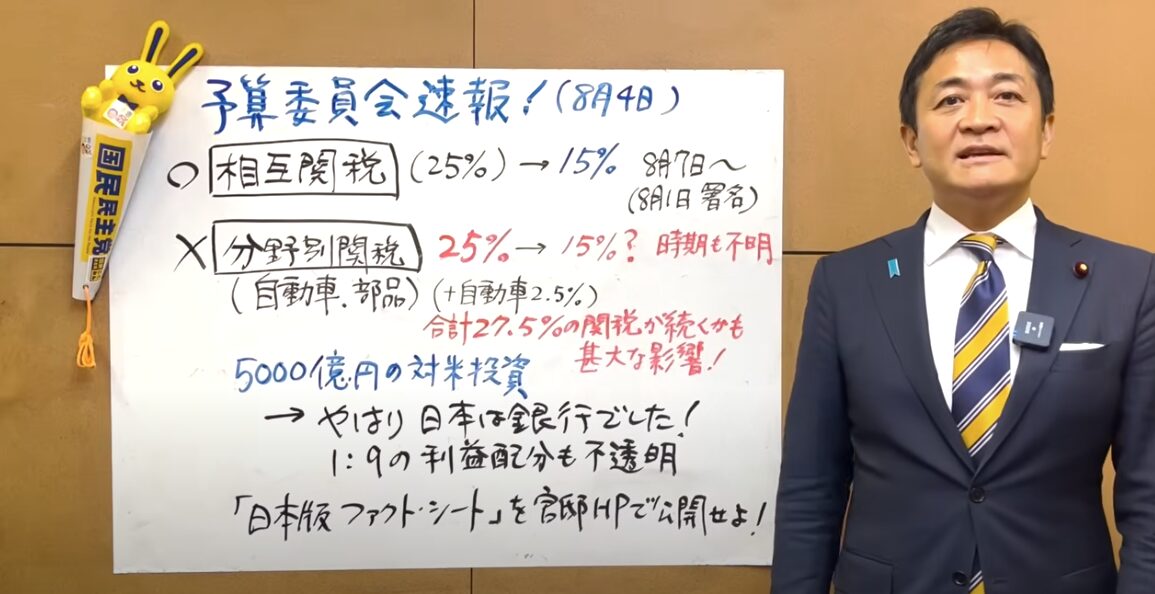 予算委員会速報!(8月4日)
○ 相互関税 (25%) → 15% 8月7日〜
(8月1日署名)
× 分野別関税 25% → 15%? 時期も不明
(自動車.部品) (+自動車2.5%)
合計27.5%の関税が続くかも
甚大な影響!
5000億円の対米投資
→ やはり日本は銀行でした!
1:9の利益配分も不透明
「日本版ファクト・シート」を官邸HPで公開せよ!
国民民主党